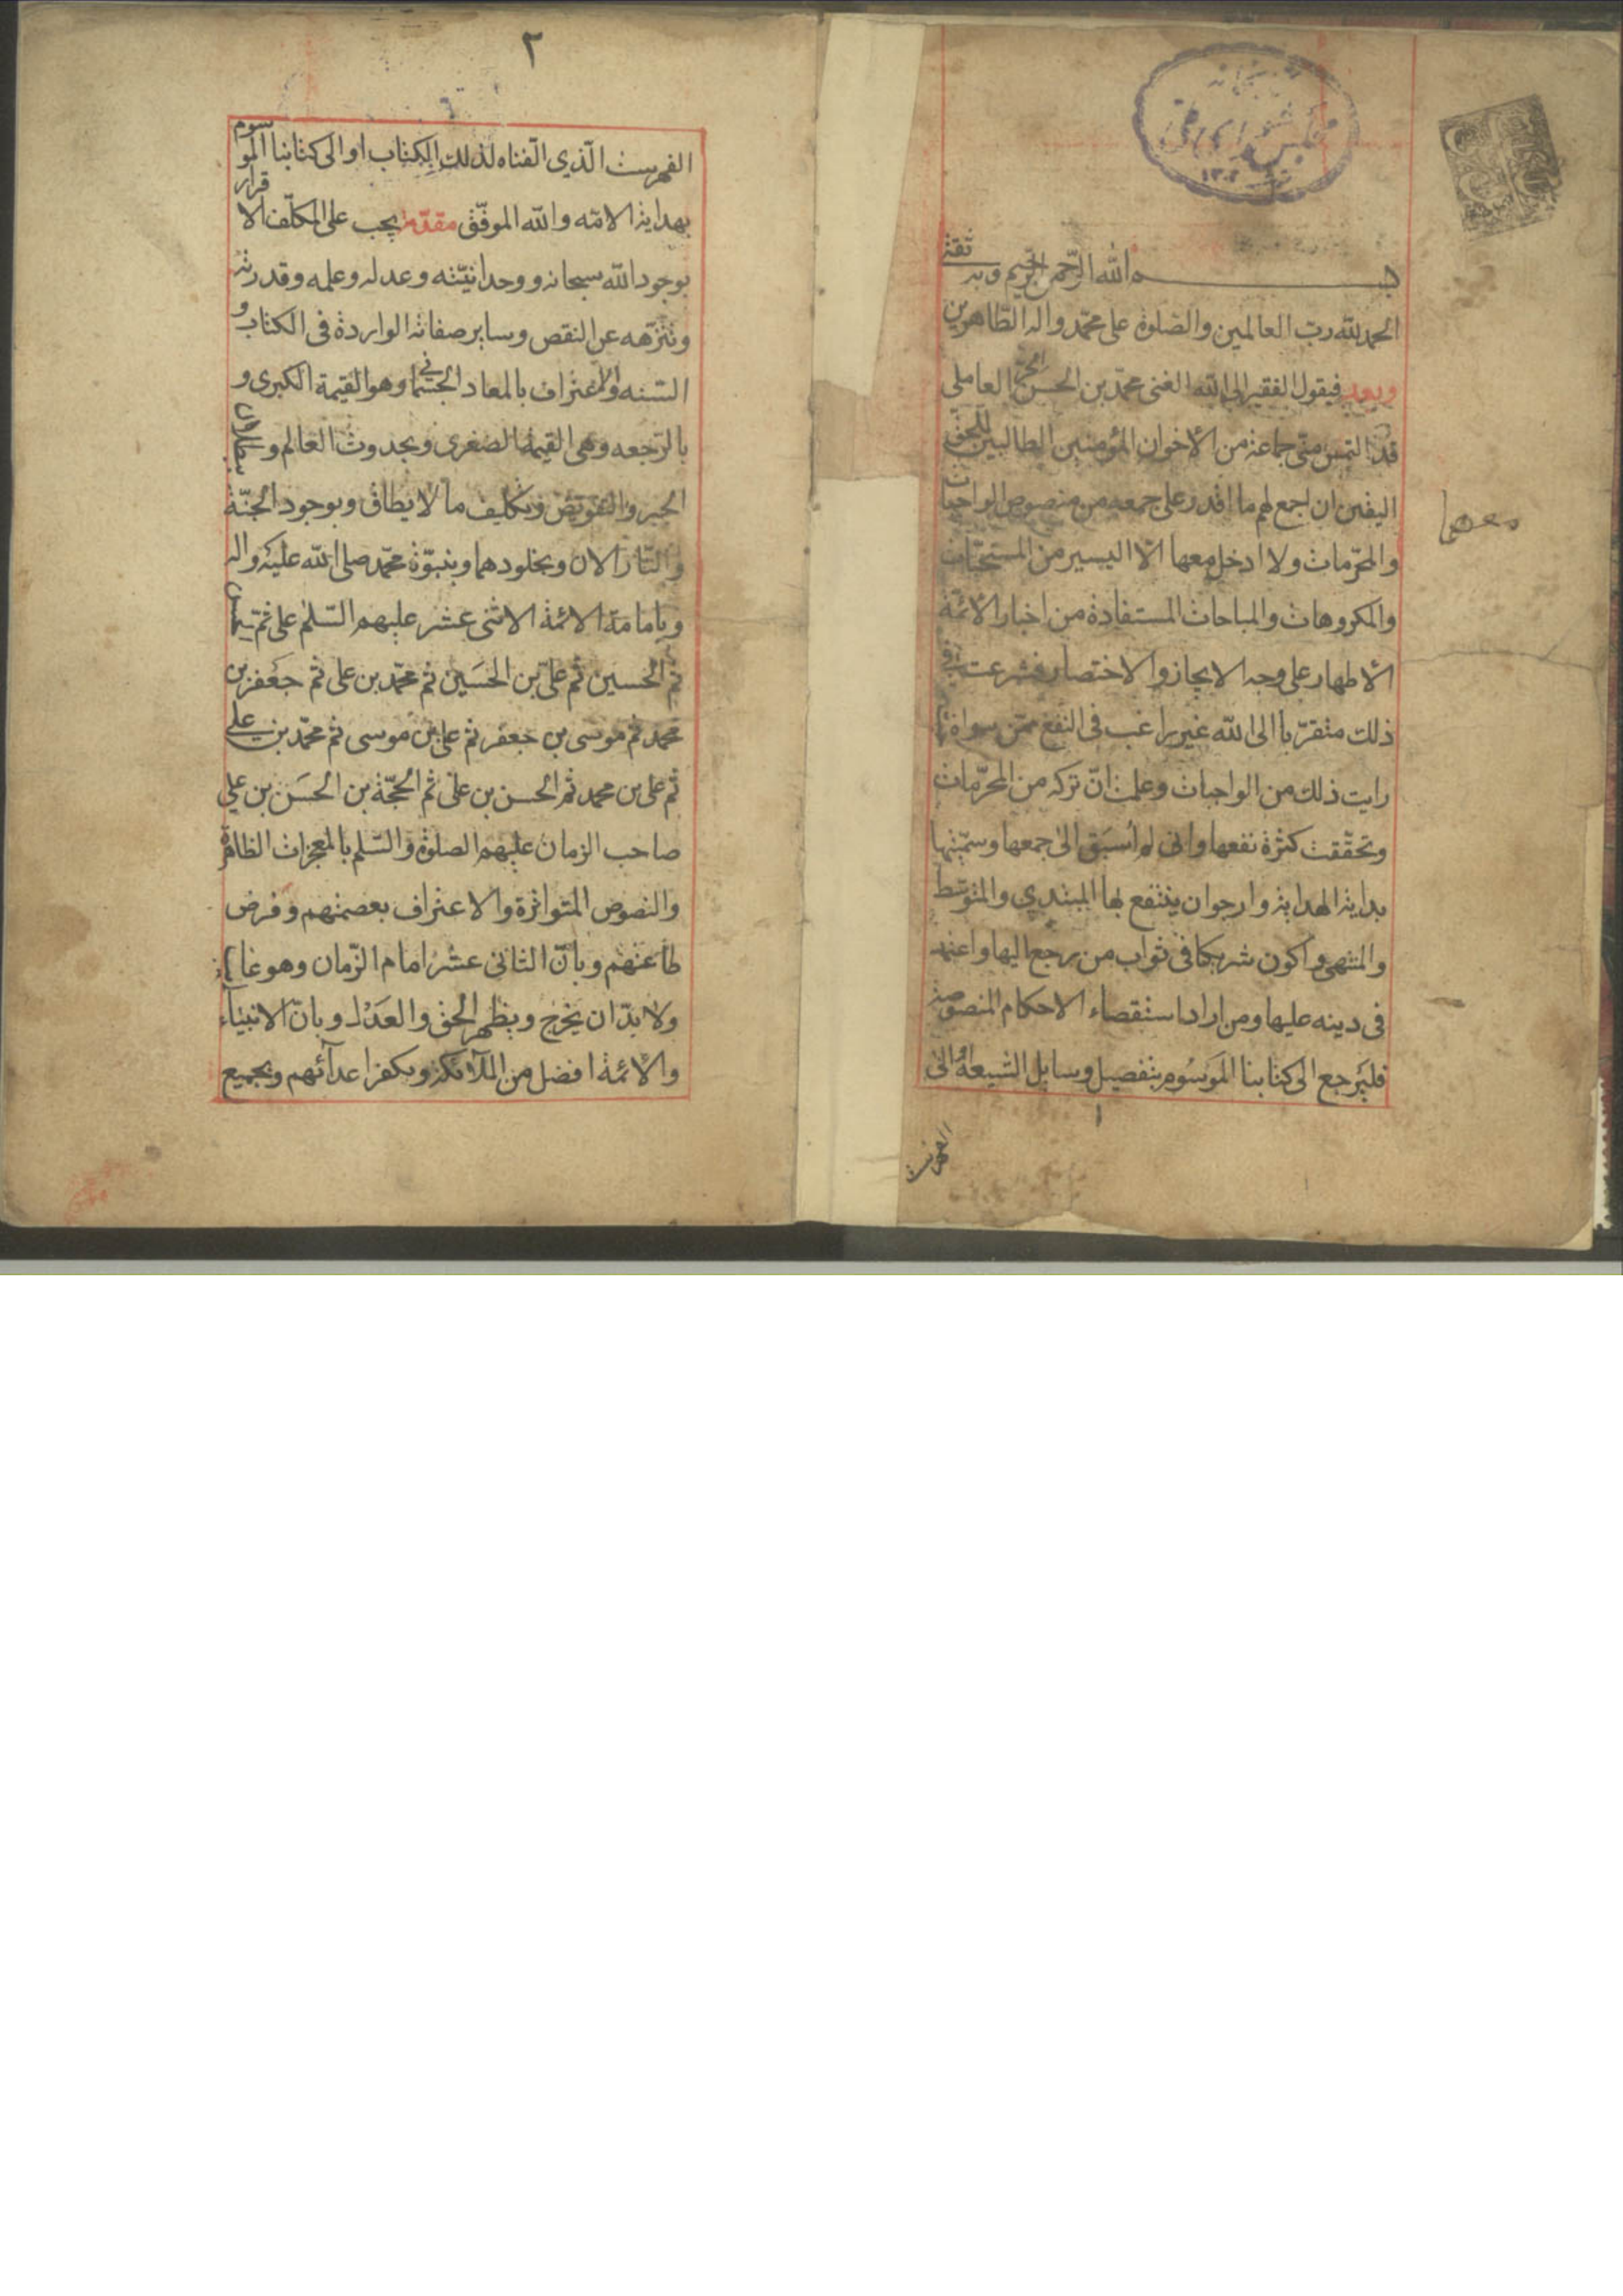 بسم الله الرحمن الرحيم وبه ثقتى
الحمد لله رب العالمين والصلوة على محمد واله الطاهرين
وبعد فيقول الفقير الى الله الغنى محمد بن الحسن الحر العاملى
قد التمس منى جماعة من الأخوان المؤمنين الطالبين للحق
اليقين ان اجمع لهم ما اقدر على جمعه من منصوص الواجبات
والمحرمات ولا ادخل معها الا اليسير من المستحبات
والمكروهات والمباحات المستفادة من اخبار الأئمة
الأطهار على وجه الايجاز والاختصار فشرعت فى
ذلك متقربا الى الله غير راغب فى النفع ممن سواه
رايت ذلك من الواجبات وعلمت ان تركه من المحرمات
وتحققت كثرة نفعها وانى لم اُسبَق الى جمعها وسميتها
بداية الهداية وارجو ان ينتفع بها المبتدي والمتوسط
والمنتهى واكون شريكا فى ثواب من رجع اليها واعتمد
فى دينه عليها ومن اراد استقصاء الاحكام المنصوصة
فليرجع الى كتابنا الموسوم بتفصيل وسايل الشيعة او الى
الفهرست
٢
الفهرست الذي الفناه لذلك الكتاب او الى كتابنا الموسوم
بهداية الامه والله الموفق مقدمة يجب على المكلف الاقرار
بوجود الله سبحانه ووحدانيته وعدله وعلمه وقدرته
وتنزهه عن النقص وساير صفاته الواردة فى الكتاب و
السنه والاعتراف بالمعاد الجسمانى وهو القيمة الكبرى و
بالرجعه وهى القيمة الصغرى وبحدوث العالم و
الجبر والتفويض وتكليف ما لا يطاق وبوجود الجنة
والنار الان وبخلودهما وبنبوة محمد صلى الله عليه واله
وبامامة الائمة الاثنى عشر عليهم السلم على ثم الحسن
ثم الحسين ثم على بن الحسين ثم محمد بن على ثم جعفر بن
محمد ثم موسى بن جعفر ثم على بن موسى ثم محمد بن على
ثم على بن محمد ثم الحسن بن على ثم الحجة بن الحسن بن علي
صاحب الزمان عليهم الصلوة والسلم بالمعجزات الظاهرة
والنصوص المتواترة والاعتراف بعصمتهم وفرض
طاعتهم وبان الثانى عشر امام الزمان وهو غائب
ولا بد ان يخرج ويظهر الحق والعدل وبان الانبياء
والأئمة افضل من الملآئكة وبكفر اعدآئهم وبجميع